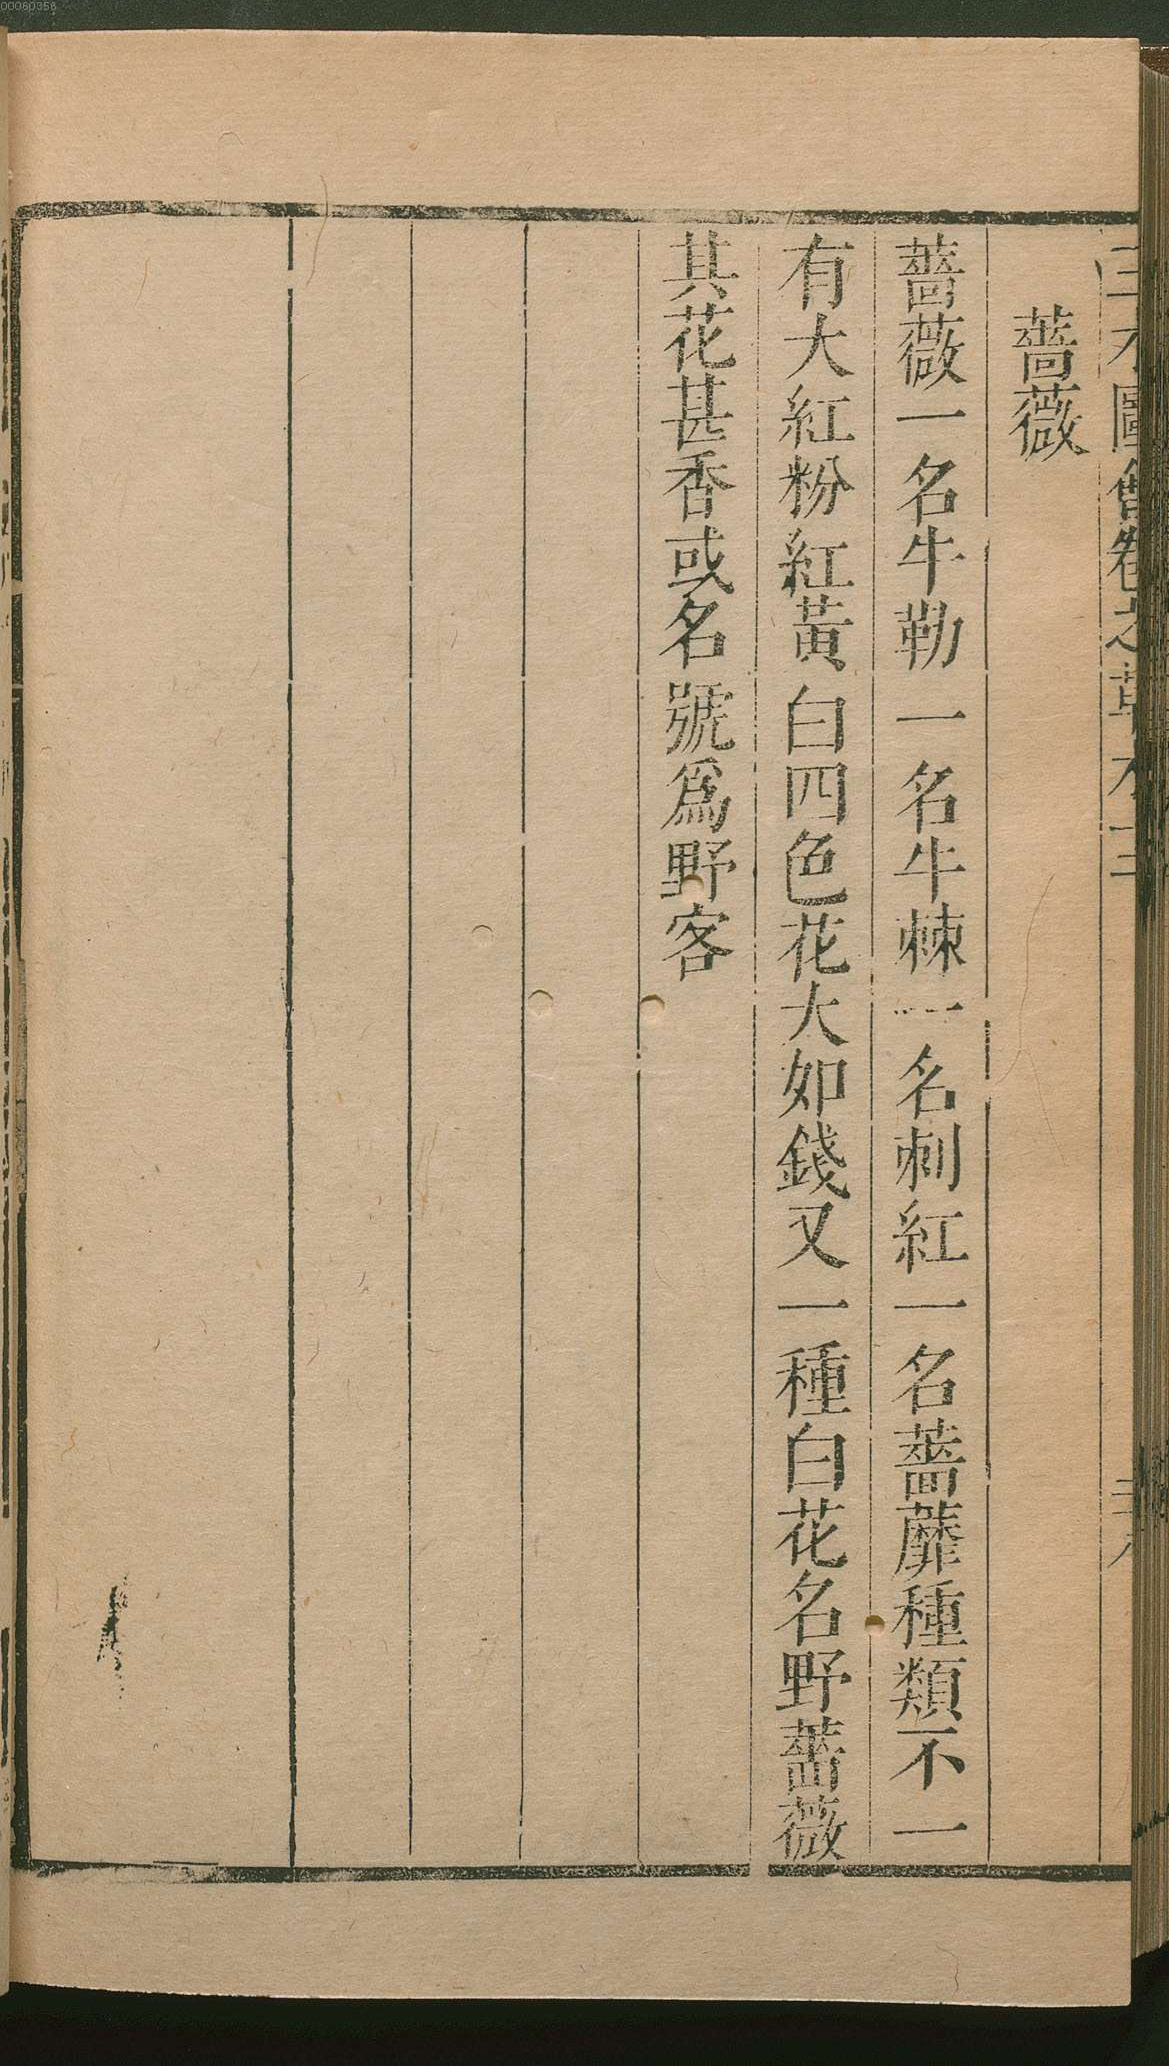 三才圖會卷之草木十二
薔薇
薔薇一名牛勒一名牛棘一名刺紅一名薔蘼種類不一
有大紅粉紅黃白四色花大如錢又一種白花名野薔薇
其花甚香或名號爲野客
00060356